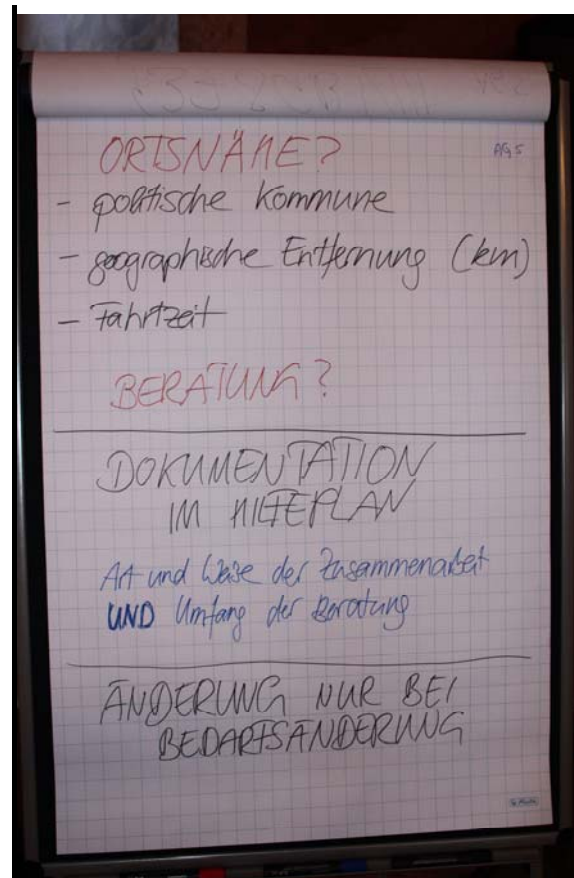 ORTSNÄHE?
AG 5
- politische Kommune
- geographische Entfernung (km)
- Fahrtzeit
BERATUNG?
DOKUMENTATION
IM HILFEPLAN
Art und Weise der Zusammenarbeit
UND Umfang der Beratung
ÄNDERUNG NUR BEI
BEDARFSÄNDERUNG